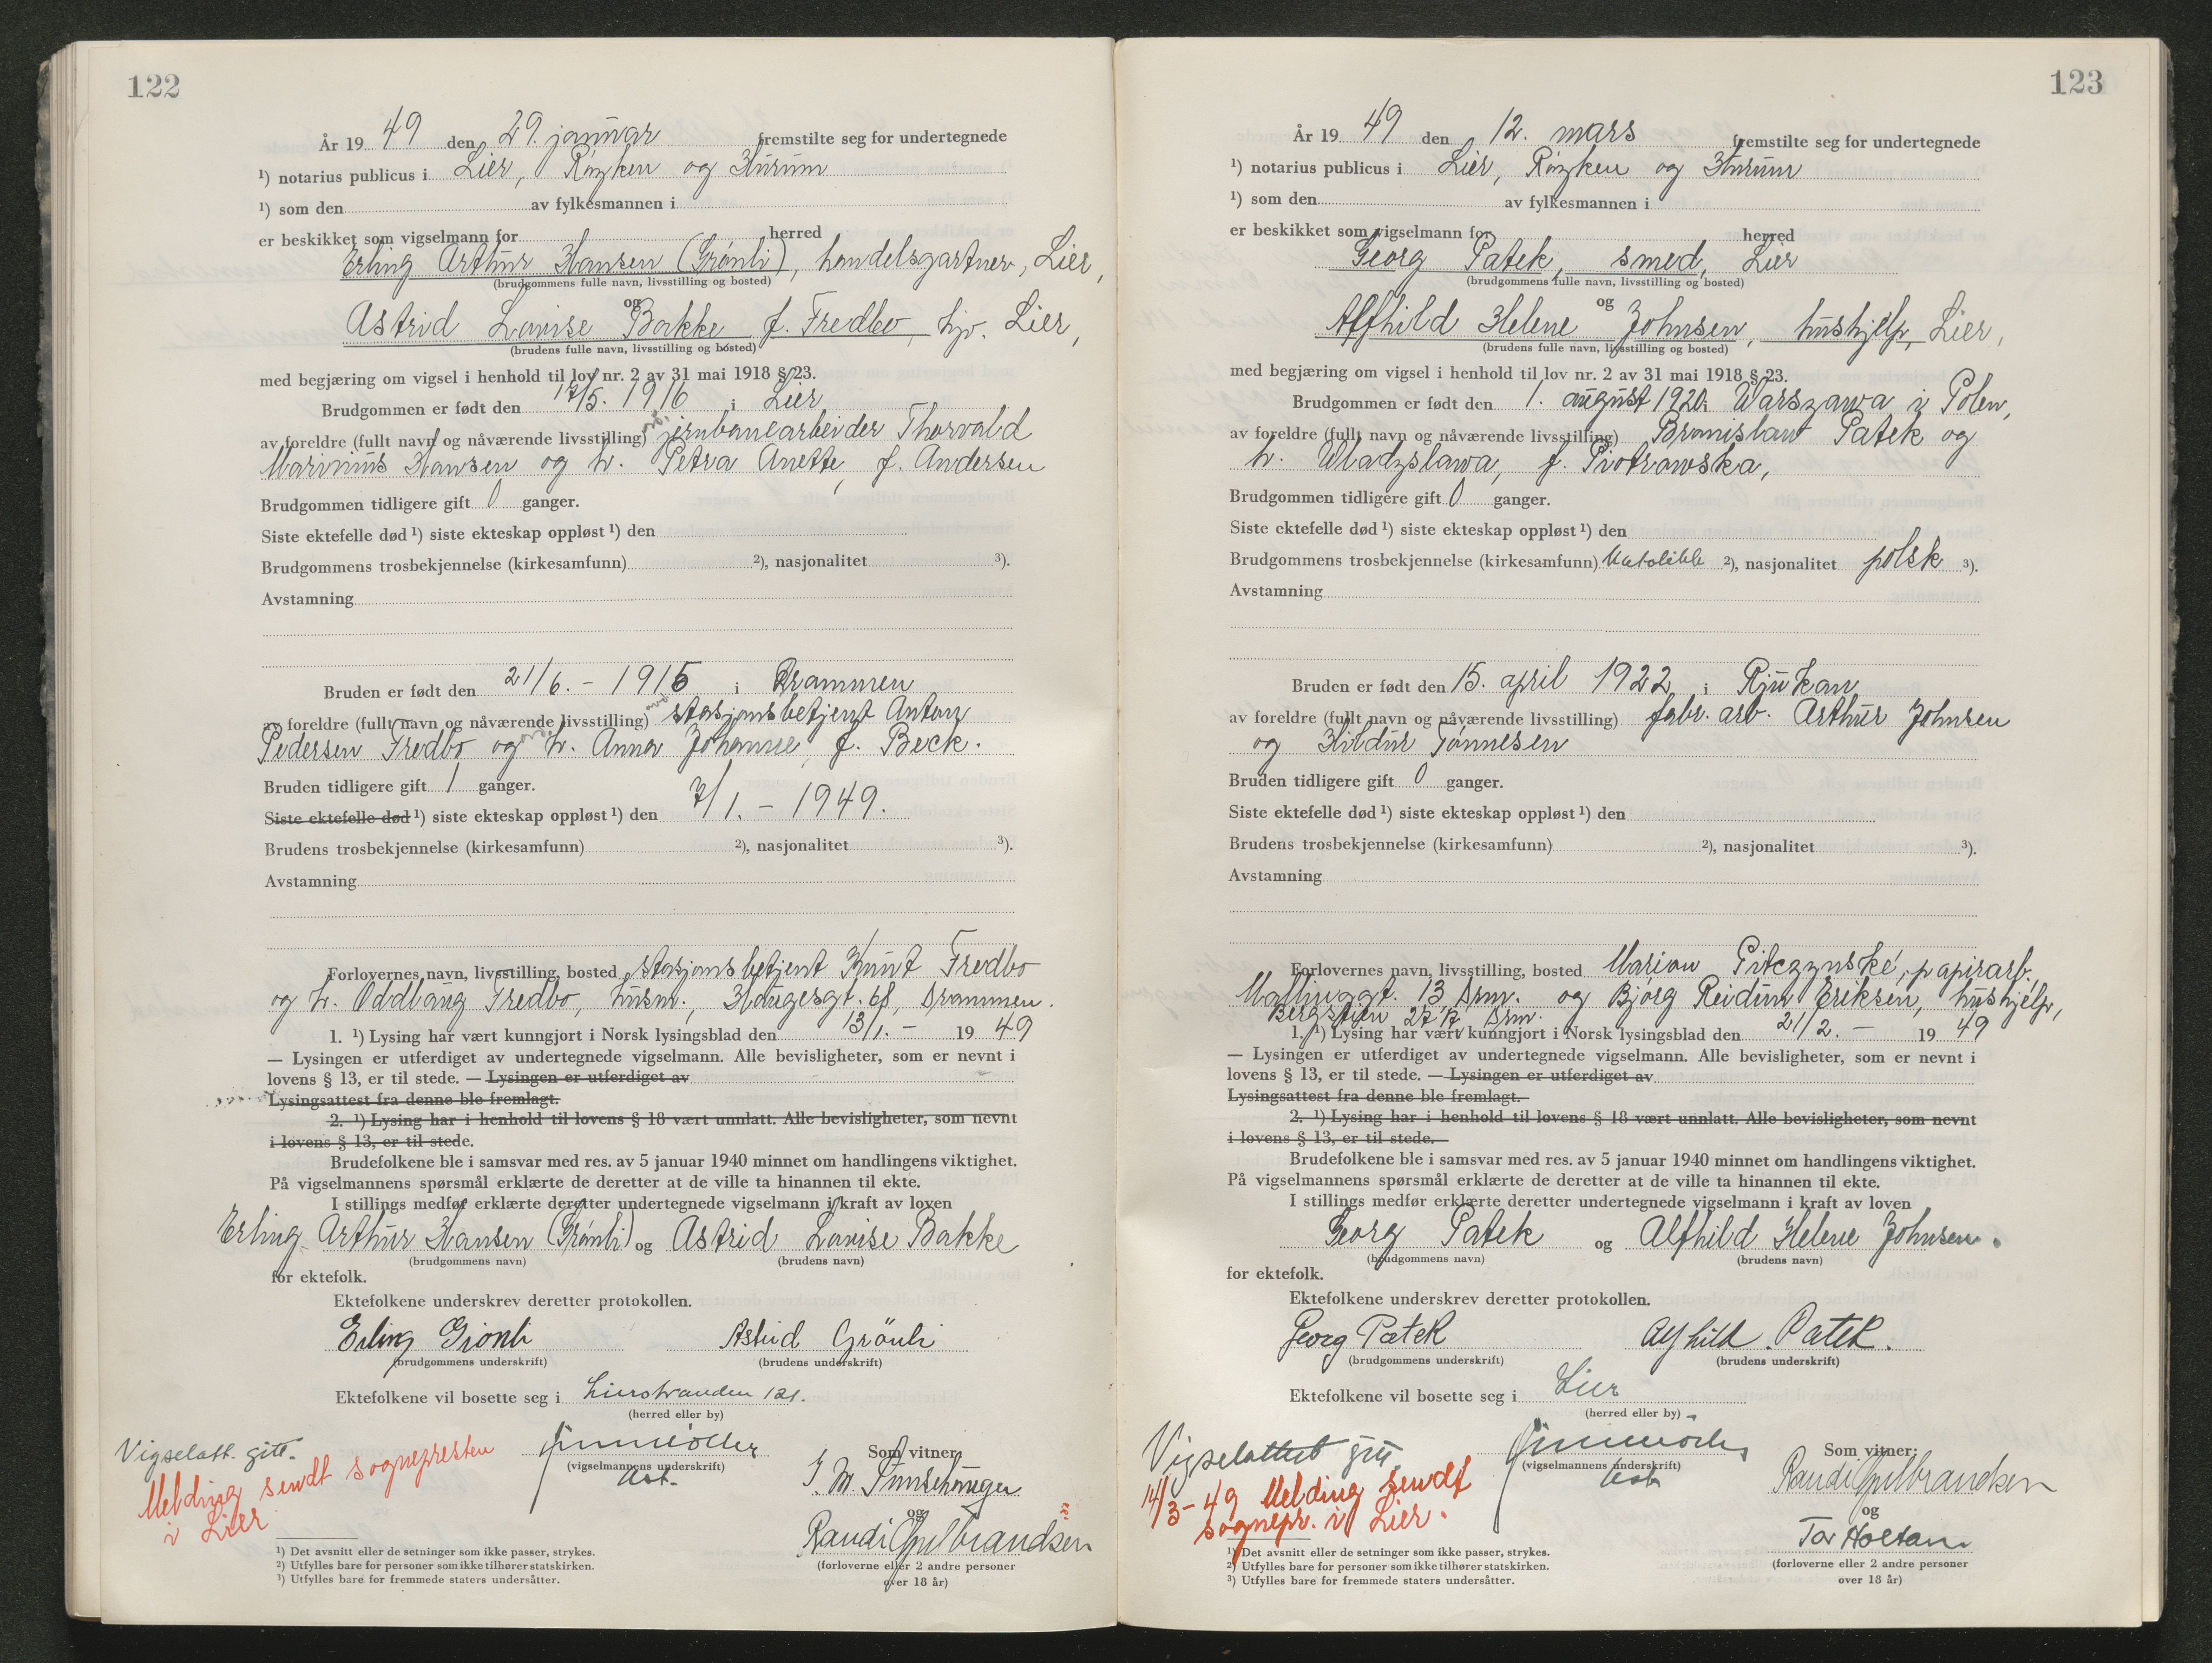 122
År 19 49 den 29. januar fremstilte seg for undertegnede
¹) notarius publicus i Lier, Røyken og Hurum
¹) som den av fylkesmannen i
er beskikket som vigselmann for herred
Erling Arthur Hansen (Grønli), handelsgartner, Lier,
(brudgommens fulle navn, livsstilling og bosted)
og
Astrid Louise Bakke f. Fredbo, hjv. Lier,
(brudens fulle navn, livsstilling og bosted)
med begjæring om vigsel i henhold til lov nr. 2 av 31 mai 1918 § 23.
Brudgommen er født den 17/5. 1916 i Lier
av foreldre (fullt navn og nåværende livsstilling) jernbanearbeider Thorvald
Marinius Hansen og h. Petra Anette, f. Andersen
Brudgommen tidligere gift 0 ganger.
Siste ektefelle død ¹) siste ekteskap oppløst ¹) den
Brudgommens trosbekjennelse (kirkesamfunn) ²), nasjonalitet ³).
Avstamning
Bruden er født den 21/6. - 1915 i Drammen
av foreldre (fullt navn og nåværende livsstilling) stasjonsbetjent Anton
Pedersen Fredbo og h. Anna Johanne, f. Beck.
Bruden tidligere gift 1 ganger.
Siste ektefelle død ¹) siste ekteskap oppløst ¹) den 7/1. - 1949.
Brudens trosbekjennelse (kirkesamfunn) ²), nasjonalitet ³).
Avstamning
Forlovernes navn, livsstilling, bosted stasjonsbetjent Knut Fredbo
og h. Oddbaug Fredbo, husm., Haugesgt. 68, Drammen.
1. ¹) Lysing har vært kunngjort i Norsk lysingsblad den 13/1. - 19 49
— Lysingen er utferdiget av undertegnede vigselmann. Alle bevisligheter, som er nevnt i
lovens § 13, er til stede. — Lysingen er utferdiget av
Lysingsattest fra denne ble fremlagt.
2. ¹) Lysing har i henhold til lovens § 18 vært unnlatt. Alle bevisligheter, som nevnt
i lovens § 13, er til stede.
Brudefolkene ble i samsvar med res. av 5 januar 1940 minnet om handlingens viktighet.
På vigselmannens spørsmål erklærte de deretter at de ville ta hinannen til ekte.
I stillings medfør erklærte deretter undertegnede vigselmann i kraft av loven
Erling Arthur Hansen (Grønli) og Astrid Louise Bakke
(brudgommens navn) (brudens navn)
for ektefolk.
Ektefolkene underskrev deretter protokollen.
Erling Grønli Astrid Grönli
(brudgommens underskrift) (brudens underskrift)
Ektefolkene vil bosette seg i Lierstranden 121.
(herred eller by)
Vigselatt. gitt.
Melding sendt sognepresten
i Lier
(vigselmannens underskrift)
Som vitner:
og
Randi Gulbrandsen
(forloverne eller 2 andre personer
over 18 år)
¹) Det avsnitt eller de setninger som ikke passer, strykes.
²) Utfylles bare for personer som ikke tilhører statskirken.
³) Utfylles bare for fremmede staters undersåtter.
123
År 19 49 den 12. mars fremstilte seg for undertegnede
¹) notarius publicus i Lier, Røyken og Hurum
¹) som den av fylkesmannen i
er beskikket som vigselmann for herred
Georg Patek, smed, Lier
(brudgommens fulle navn, livsstilling og bosted)
og
Alfhild Helene Johnsen, hushjelp, Lier,
(brudens fulle navn, livsstilling og bosted)
med begjæring om vigsel i henhold til lov nr. 2 av 31 mai 1918 § 23.
Brudgommen er født den 1. august 1920 i Warszawa i Polen,
av foreldre (fullt navn og nåværende livsstilling) Bronislaw Patek og
h. Wladzslawa, f. Piotrowska,
Brudgommen tidligere gift 0 ganger.
Siste ektefelle død ¹) siste ekteskap oppløst ¹) den
Brudgommens trosbekjennelse (kirkesamfunn) Katolikk ²), nasjonalitet polsk ³).
Avstamning
Bruden er født den 15. april 1922 i Rjukan
av foreldre (fullt navn og nåværende livsstilling) fabr. arb. Arthur Johnsen
og Hildur Tønnesen
Bruden tidligere gift 0 ganger.
Siste ektefelle død ¹) siste ekteskap oppløst ¹) den
Brudens trosbekjennelse (kirkesamfunn) ²), nasjonalitet ³).
Avstamning
Forlovernes navn, livsstilling, bosted Marian papirarb.,
13 Drm. og Bjørg Reidun Eriksen, hushjelp,
Bergstien Drm.
1. ¹) Lysing har vært kunngjort i Norsk lysingsblad den 21/2. - 19 49
— Lysingen er utferdiget av undertegnede vigselmann. Alle bevisligheter, som er nevnt i
lovens § 13, er til stede. — Lysingen er utferdiget av
Lysingsattest fra denne ble fremlagt.
2. ¹) Lysing har i henhold til lovens § 18 vært unnlatt. Alle bevisligheter, som nevnt
i lovens § 13, er til stede.
Brudefolkene ble i samsvar med res. av 5 januar 1940 minnet om handlingens viktighet.
På vigselmannens spørsmål erklærte de deretter at de ville ta hinannen til ekte.
I stillings medfør erklærte deretter undertegnede vigselmann i kraft av loven
Georg Patek og Alfhild Helene Johnsen.
(brudgommens navn) (brudens navn)
for ektefolk.
Ektefolkene underskrev deretter protokollen.
Georg Patek Alfhild Patek.
(brudgommens underskrift) (brudens underskrift)
Ektefolkene vil bosette seg i Lier
(herred eller by)
Vigselattest gitt
14/3-49 Melding sendt
sognepr. i Lier.
(vigselmannens underskrift)
Som vitner:
Randi Gulbrandsen
og
Tor Holtan
(forloverne eller 2 andre personer
over 18 år)
¹) Det avsnitt eller de setninger som ikke passer, strykes.
²) Utfylles bare for personer som ikke tilhører statskirken.
³) Utfylles bare for fremmede staters undersåtter.